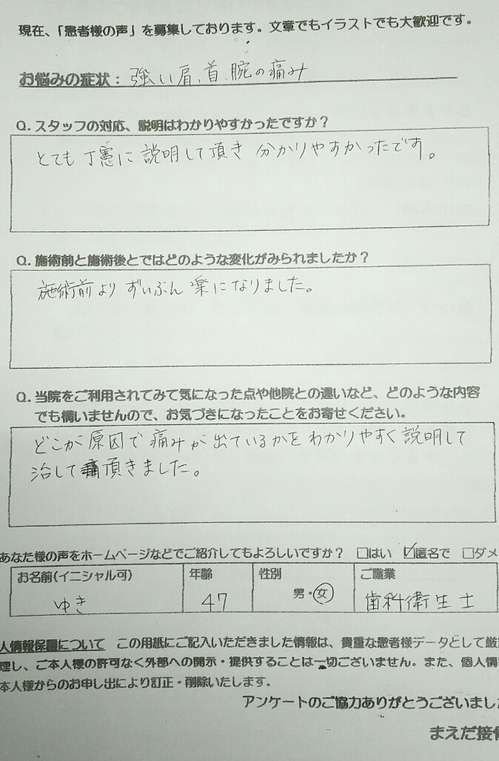 現在、「患者様の声」を募集しております。文章でもイラストでも大歓迎です。
お悩みの症状：強い肩、首、腕の痛み
Q．スタッフの対応、説明はわかりやすかったですか？
とても丁寧に説明して頂き 分かりやすかったです。
Q．施術前と施術後とではどのような変化がみられましたか？
施術前より ずいぶん 楽になりました。
Q．当院をご利用されてみて気になった点や他院との違いなど、どのような内容
でも構いませんので、お気づきになったことをお寄せください。
どこが原因で痛みが出ているかをわかりやすく説明して
治して頂きました。
あなた様の声をホームページなどでご紹介してもよろしいですか？ □はい ☑匿名で □ダメ
お名前(イニシャル可) 年齢 性別 ご職業
ゆき 47 男・女 歯科衛生士
人情報保護について この用紙にご記入いただきました情報は、貴重な患者様データとして厳
理し、ご本人様の許可なく外部への開示・提供することは一切ございません。また、個人情
本人様からのお申し出により訂正・削除いたします。
アンケートのご協力ありがとうございまし
まえだ接骨